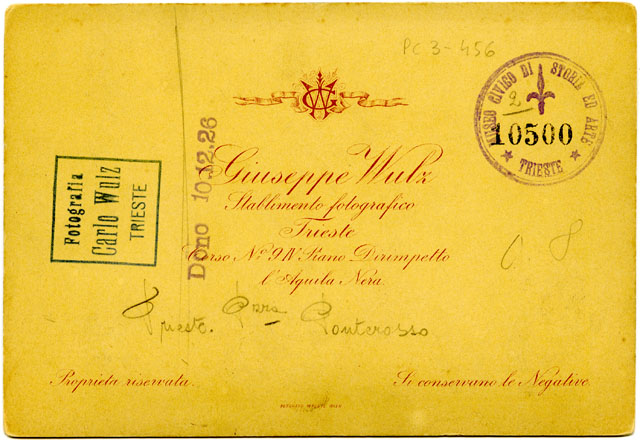 PC 3-456
MUSEO CIVICO DI STORIA ED ARTE
2
10500
TRIESTE
GW
Giuseppe Wulz
Stablimento fotografico
Trieste
Corso No. 9 IV Piano Dirimpetto
l'Aquila Nera.
Fotografia
Carlo Wulz
TRIESTE
Dono 10.12.26
C. 8
Trieste. Ponterosso
Proprieta riservata.
Si conservano le Negative.